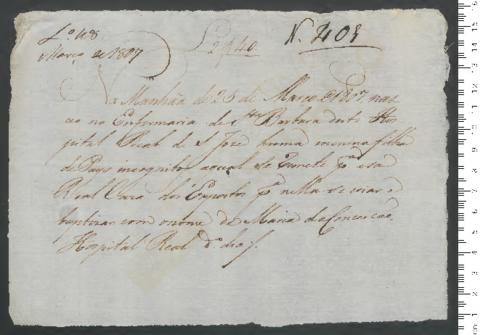 Lº 48
Março de 1807
L 2440
N. 408
Na Manhãa de 25 de Março de 1807. nas
ceo na Enfermaria de Stª Barbara deste Hos
pital Real de S. José huma menina filha
de Pays incognitos a qual se remete pª essa
Real Caza dos Expostos pª nella se criar e
bautizar com o nome de Maria da Conceicão
Hospital Real dº dia